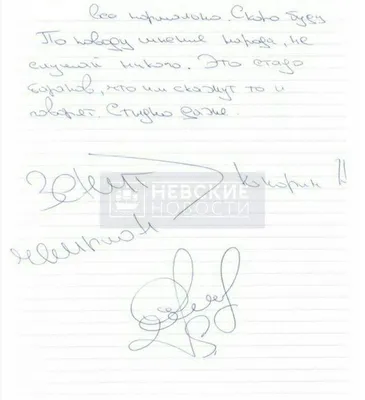 все нормально. Скоро буду
По поводу мнение народа, не
слушай никого. Это стадо
баранов, что им скажут то и
говорят. Стыдно даже.
Зенит
Кокорин !!
чемпион
НЕВСКИЕ
НОВОСТИ